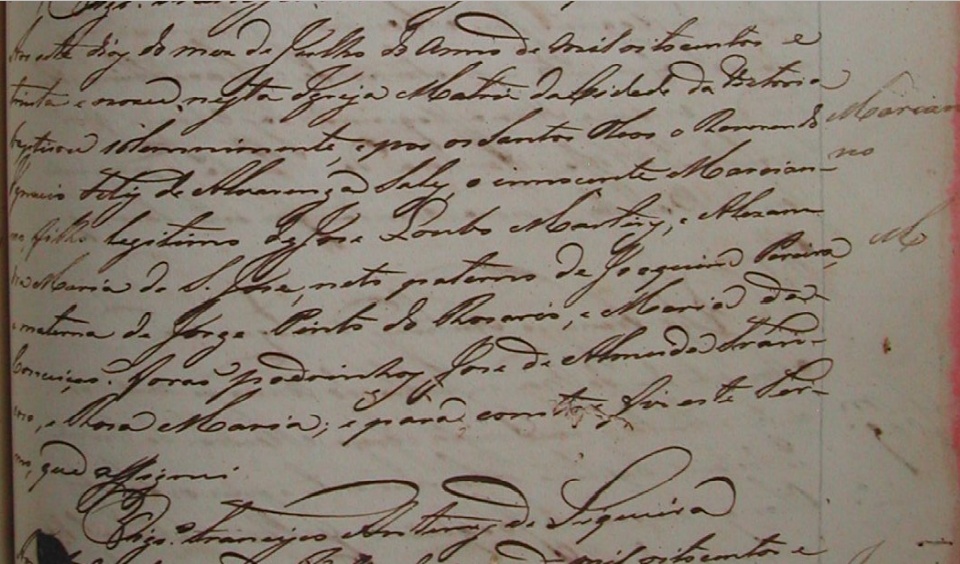 Aos sete dias do mez de Julho do Anno de mil oitocentos e
trinta e nove, nesta Igreja Matriz da Cidade da Victoria
baptisou solemnimente, e pos os Santos Oleos o Reverendo
Ignacio de Alvarenga Sales o innocente Marcian-
no filho legitimo de Jose Martins, e Alexan-
Maria de S. Jose, neto paterno de Joaquim Pereira,
e materna de Jorge Pinto do Rosario, e Maria da
Conceição. foraõ padrinhos, Jose de Almeida Fran-
e Rosa Maria; e para constar fis este Ter-
mo, que assignei
Vigº. Francisco Antunes de Siqueira
mil oitocentos e
Marcian
no